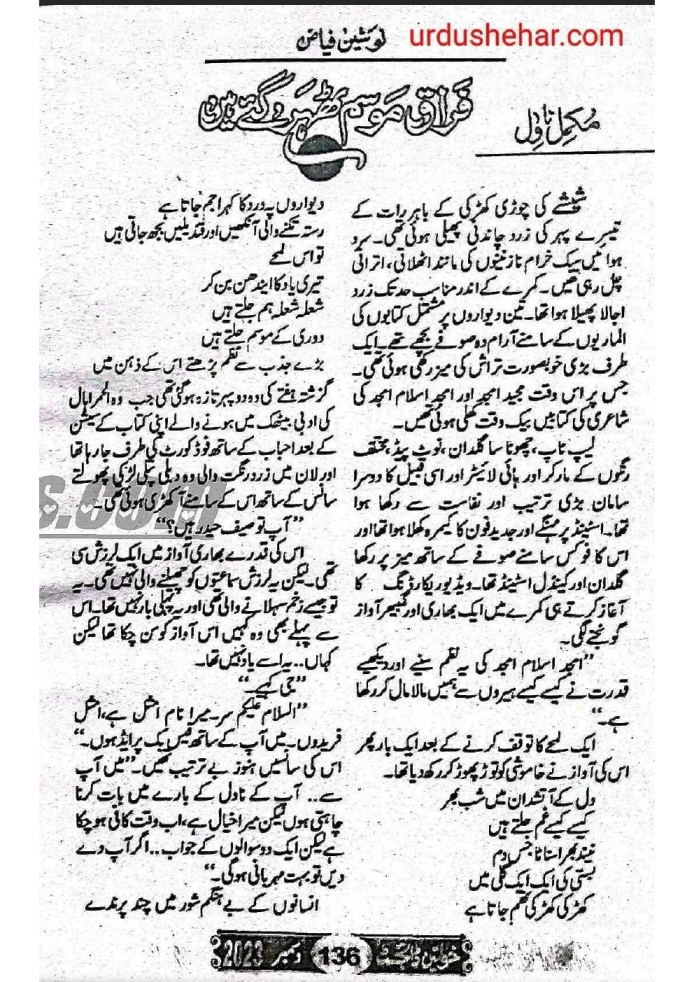 نوشین فیاض
urdushehar.com
فراق موسم ٹھہر گئے ہیں
مکمل ناول
شیشے کی چوڑی کھڑکی کے باہر رات کے
تیسرے پہر کی زرد چاندنی پھیلی ہوئی تھی۔ سرد
ہوائیں سبک خرام نازنینوں کی مانند اٹھلاتی، اتراتی
چل رہی تھیں۔ کمرے کے اندر مناسب حد تک زرد
اجالا پھیلا ہوا تھا۔ تین دیواروں پر مشتمل کتابوں کی
الماریوں کے سامنے آرام دہ صوفے بچھے تھے۔ ایک
طرف بڑی خوبصورت تراش کی میز رکھی ہوئی تھی۔
جس پر اس وقت مجید امجد اور امجد اسلام امجد کی
شاعری کی کتابیں بیک وقت کھلی ہوئی تھیں۔
لیپ ٹاپ، چھوٹا سا گلدان، نوٹ پیڈ، مختلف
رنگوں کے مارکر اور ہائی لائیٹر اور اسی قبیل کا دوسرا
سامان بڑی ترتیب اور نفاست سے رکھا ہوا
تھا۔ اسٹینڈ پر مہنگے اور جدید فون کا کیمرہ کھلا ہوا تھا اور
اس کا فوکس سامنے صوفے کے ساتھ میز پر رکھا
گلدان اور کینڈل اسٹینڈ تھا۔ ویڈیو ریکارڈنگ کا
آغاز کرتے ہی کمرے میں ایک بھاری اور گمبھیر آواز
گونجنے لگی۔
”امجد اسلام امجد کی یہ نظم سنیے اور دیکھیے
قدرت نے کیسے کیسے ہیروں سے ہمیں مالا مال کر رکھا
ہے۔“
ایک لمحے کا توقف کرنے کے بعد ایک بار پھر
اس کی آواز نے خاموشی کو توڑ پھوڑ کر رکھ دیا تھا۔
دل کے آتشدان میں شب بھر
کیسے کیسے غم جلتے ہیں
نیند بھرا سناٹا جس دم
بستی کی ایک ایک گلی میں
کھڑکی کھڑکی تھم جاتا ہے
دیواروں پہ درد کا کہرا جم جاتا ہے
رستہ تکنے والی آنکھیں اور قندیلیں بجھ جاتی ہیں
تو اس لمحے
تیری یاد کا ایندھن بن کر
شعلہ شعلہ ہم جلتے ہیں
دوری کے موسم جلتے ہیں
بڑے جذب سے نظم پڑھتے اس کے ذہن میں
گزشتہ ہفتے کی وہ دوپہر تازہ ہو گئی تھی جب وہ الحمرا ہال
کی ادبی بیٹھک میں ہونے والے اپنی کتاب کے سیشن
کے بعد احباب کے ساتھ فوڈ کورٹ کی طرف جا رہا تھا
اور لان میں زرد رنگت والی وہ دبلی پتلی لڑکی پھولتے
سانس کے ساتھ اس کے سامنے آ کھڑی ہوئی تھی۔
”آپ توصیف حیدر ہیں؟“
اس کی قدرے بھاری آواز میں ایک لرزش سی
تھی۔ لیکن یہ لرزش سماعتوں کو چھیلنے والی نہیں تھی۔ یہ
تو جیسے زخم سہلانے والی تھی اور یہ پہلی بار نہیں تھا۔ اس
سے پہلے بھی وہ کہیں اس آواز کو سن چکا تھا لیکن
کہاں.. یہ اسے یاد نہیں تھا۔
”جی کہیے۔“
”السلام علیکم سر۔ میرا نام اشل ہے، اشل
فریدوں۔ میں آپ کے ساتھ فیس بک پر ایڈ ہوں۔“
اس کی سانسیں ہنوز بے ترتیب تھیں۔ ”میں آپ
سے.. آپ کے ناول کے بارے میں بات کرنا
چاہتی ہوں لیکن میرا خیال ہے، اب وقت کافی ہو چکا
ہے لیکن ایک دو سوالوں کے جواب.. اگر آپ دے
دیں تو بہت مہربانی ہوگی۔“
انسانوں کے بے ہنگم شور میں چند پرندے
خواتین ڈائجسٹ 136 دسمبر 2023